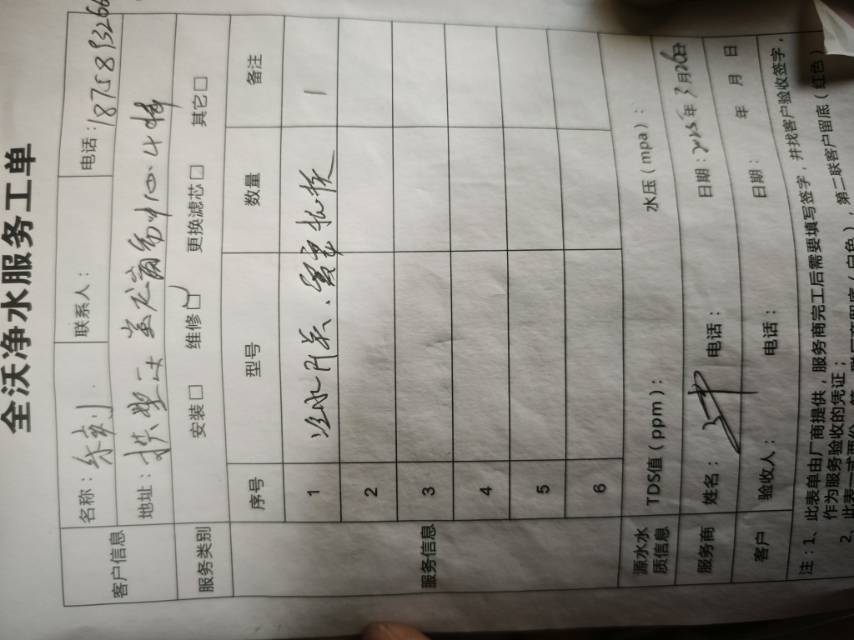 全沃净水服务工单
客户信息 名称： 联系人： 电话：187589326
地址： 4栋
服务类别 安装□ 维修□✓ 更换滤芯□ 其它□
服务信息 序号 型号 数量 备注
1 冷水开关、需更换
2
3
4
5
6
源水水质信息 TDS值（ppm）： 水压（mpa）：
服务商 姓名： 电话： 日期： 年3月26日
客户 验收人： 电话： 日期： 年 月 日
注：1、此表单由厂商提供，服务商完工后需要填写签字，并找客户验收签字，
作为服务验收的凭证；
2、此表一式两份，第一联厂商留底（白色），第二联客户留底（红色）